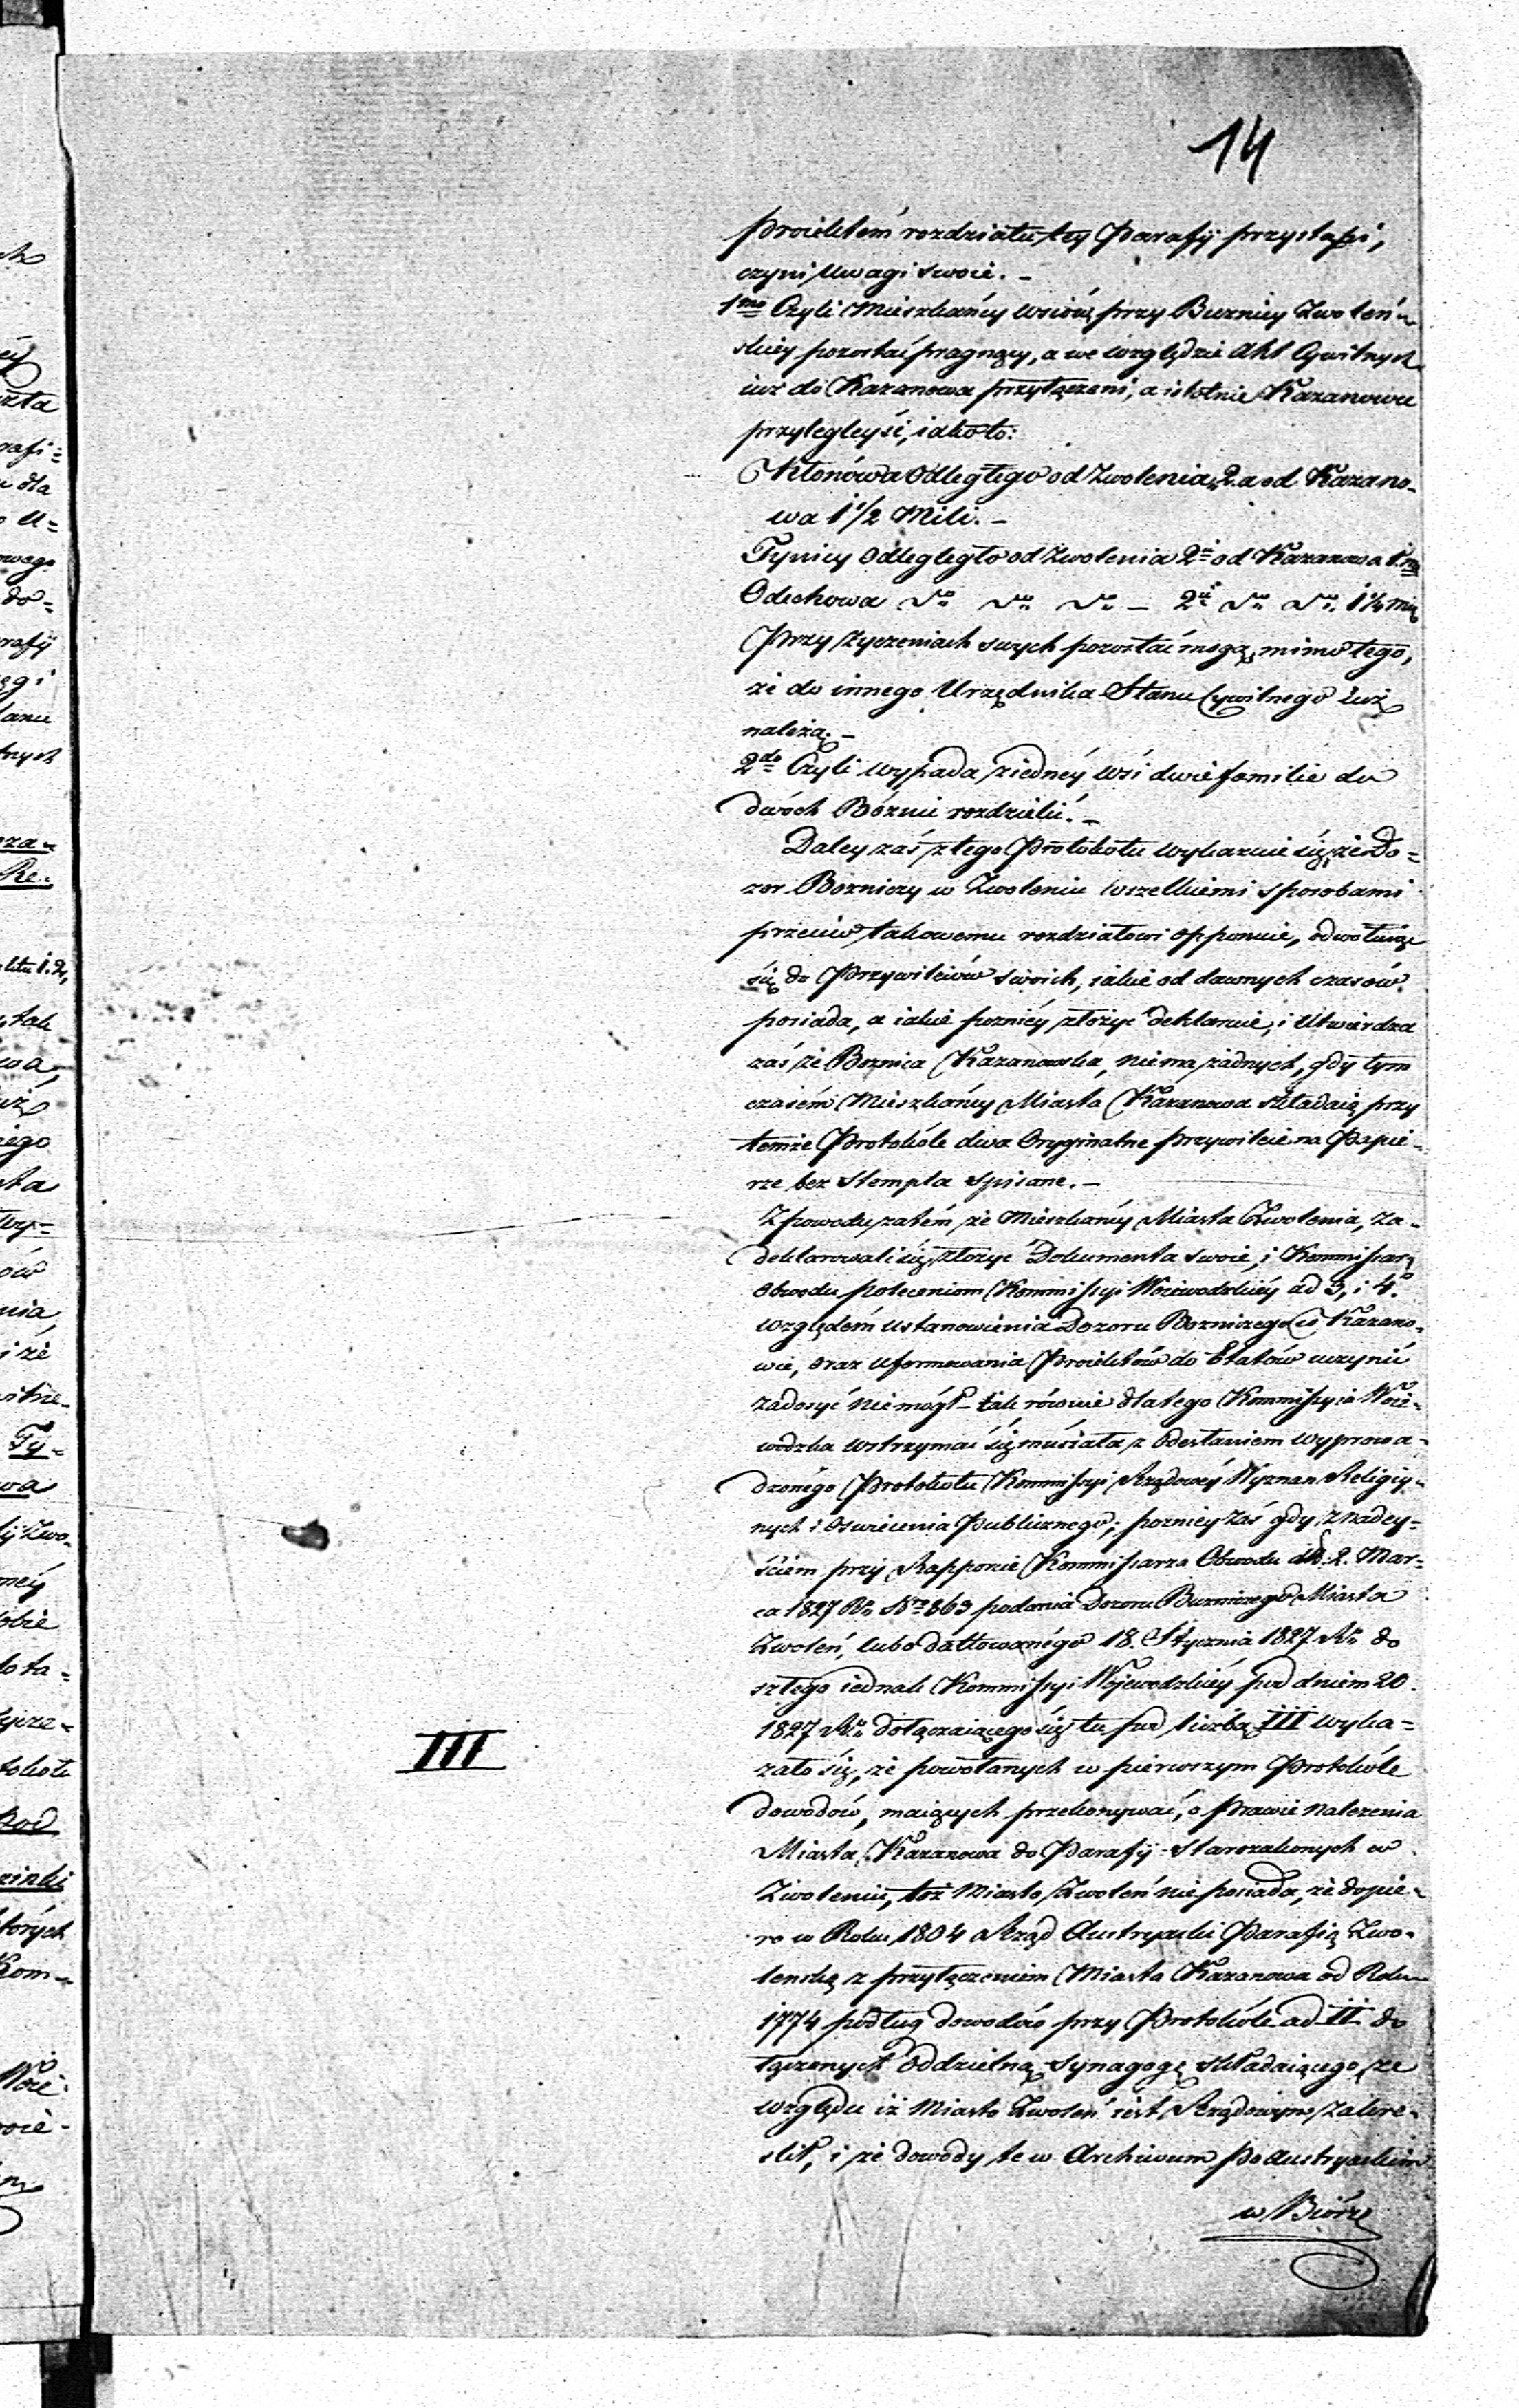 14
proiektém rozdziału tey Parafij przystąpi,
czyni Uwagi swoie. -
1mo Czyli Mieszkańcy wsiów przy Buznicy Zwoleń-
skiey pozostać pragnący, a we względzie Akt Cywilnych
iuż do Kazanowa przyłączeni, a istotnie Kazanowu
przylegleysi, iakoto:
Kłonówa Odległego od Zwolenia 2. a od Kazano-
wa 1 1/2 Mili. -
Tynicy Odległego od Zwolenia 2ii od Kazanowa 1.
Odechowa do do do - 2ii do do 1 1/2 mili
Przy życzeniach swych pozostać mogą, mimo tego,
że do innego Urzędnika Stanu Cywilnego iuż
należą. -
2do Czyli wypada z iednéy wsi dwie familie do
dwóch Bóznic rozdzielić. -
Daley zaś z tego Protokółu wykazuie się, że Do-
zor Bozniczy w Zwoleniu wszelkiemi sposobami
przeciw takowemu rozdziałowi opponuie, odwołuiąc
się do Przywileiów swoich, iakie od dawnych czasów
posiada, a iakie pozniéy złożyć deklaruie, i Utwierdza
zaś że Boznica Kazanowska, niema żadnych, gdy tym
czasém Mieszkańcy Miasta Kazanowa składaią przy
temże Protokóle dwa Oryginalne przywileie na Papie-
rze bez stempla spisane. -
Z powodu zatém że Mieszkańcy Miasta Zwolenia, za-
deklarowali się złożyć Dokumenta swoie, i Kommissarz
Obwodu poleceniom Kommissyi Woiewodzkiéy ad 3, i 4o
względém ustanowienia Dozoru Bozniczego w Kazano-
wie, oraz uformowania Proiektów do Etatów uczynić
zadosyć niemógł - tak rownie dlatego Kommissyia Woie-
wodzka wstrzymać się musiała z Odesłaniem wyprowa-
dzonégo Protokołu Kommissyi Rządowéy Wyznan Religiy-
nych i Oswiecenia Publicznego; pozniey zaś gdy z nadey-
ściem przy Rapporcie Kommissarza Obwodu dd: 2. Mar-
ca 1827 Ro No 863 podania Dozoru Buzniczego Miasta
Zwoleń, lubo dattowanégo 18. Stycznia 1827 Ro do
szłego iednak Kommissyi Wojewodzkiéy pod dniem 20
1827 Ro dołączaiącego się tu pod liczbą III wyka-
III
zało się, że powołanych w pierwszym Protokóle
dowodów, maiących przekonywać, o Prawie nalezenia
Miasta Kazanowa do Parafij Starozakonych w
Zwoleniu, toż Miasto Zwoleń nie posiada, że dopie-
ro w Roku 1804 Rząd Austryacki Parafią Zwo-
lenską z przyłączeniem Miasta Kazanowa od Roku
1774 podług dowodów przy Protokóle ad II do
łączonych Oddzielną Synagogę składaiącego, ze
względu iż Miasto Zwoleń iest Rządowym zakre-
slił, i że dowody te w Archiwum po Austryackim
w Biórze